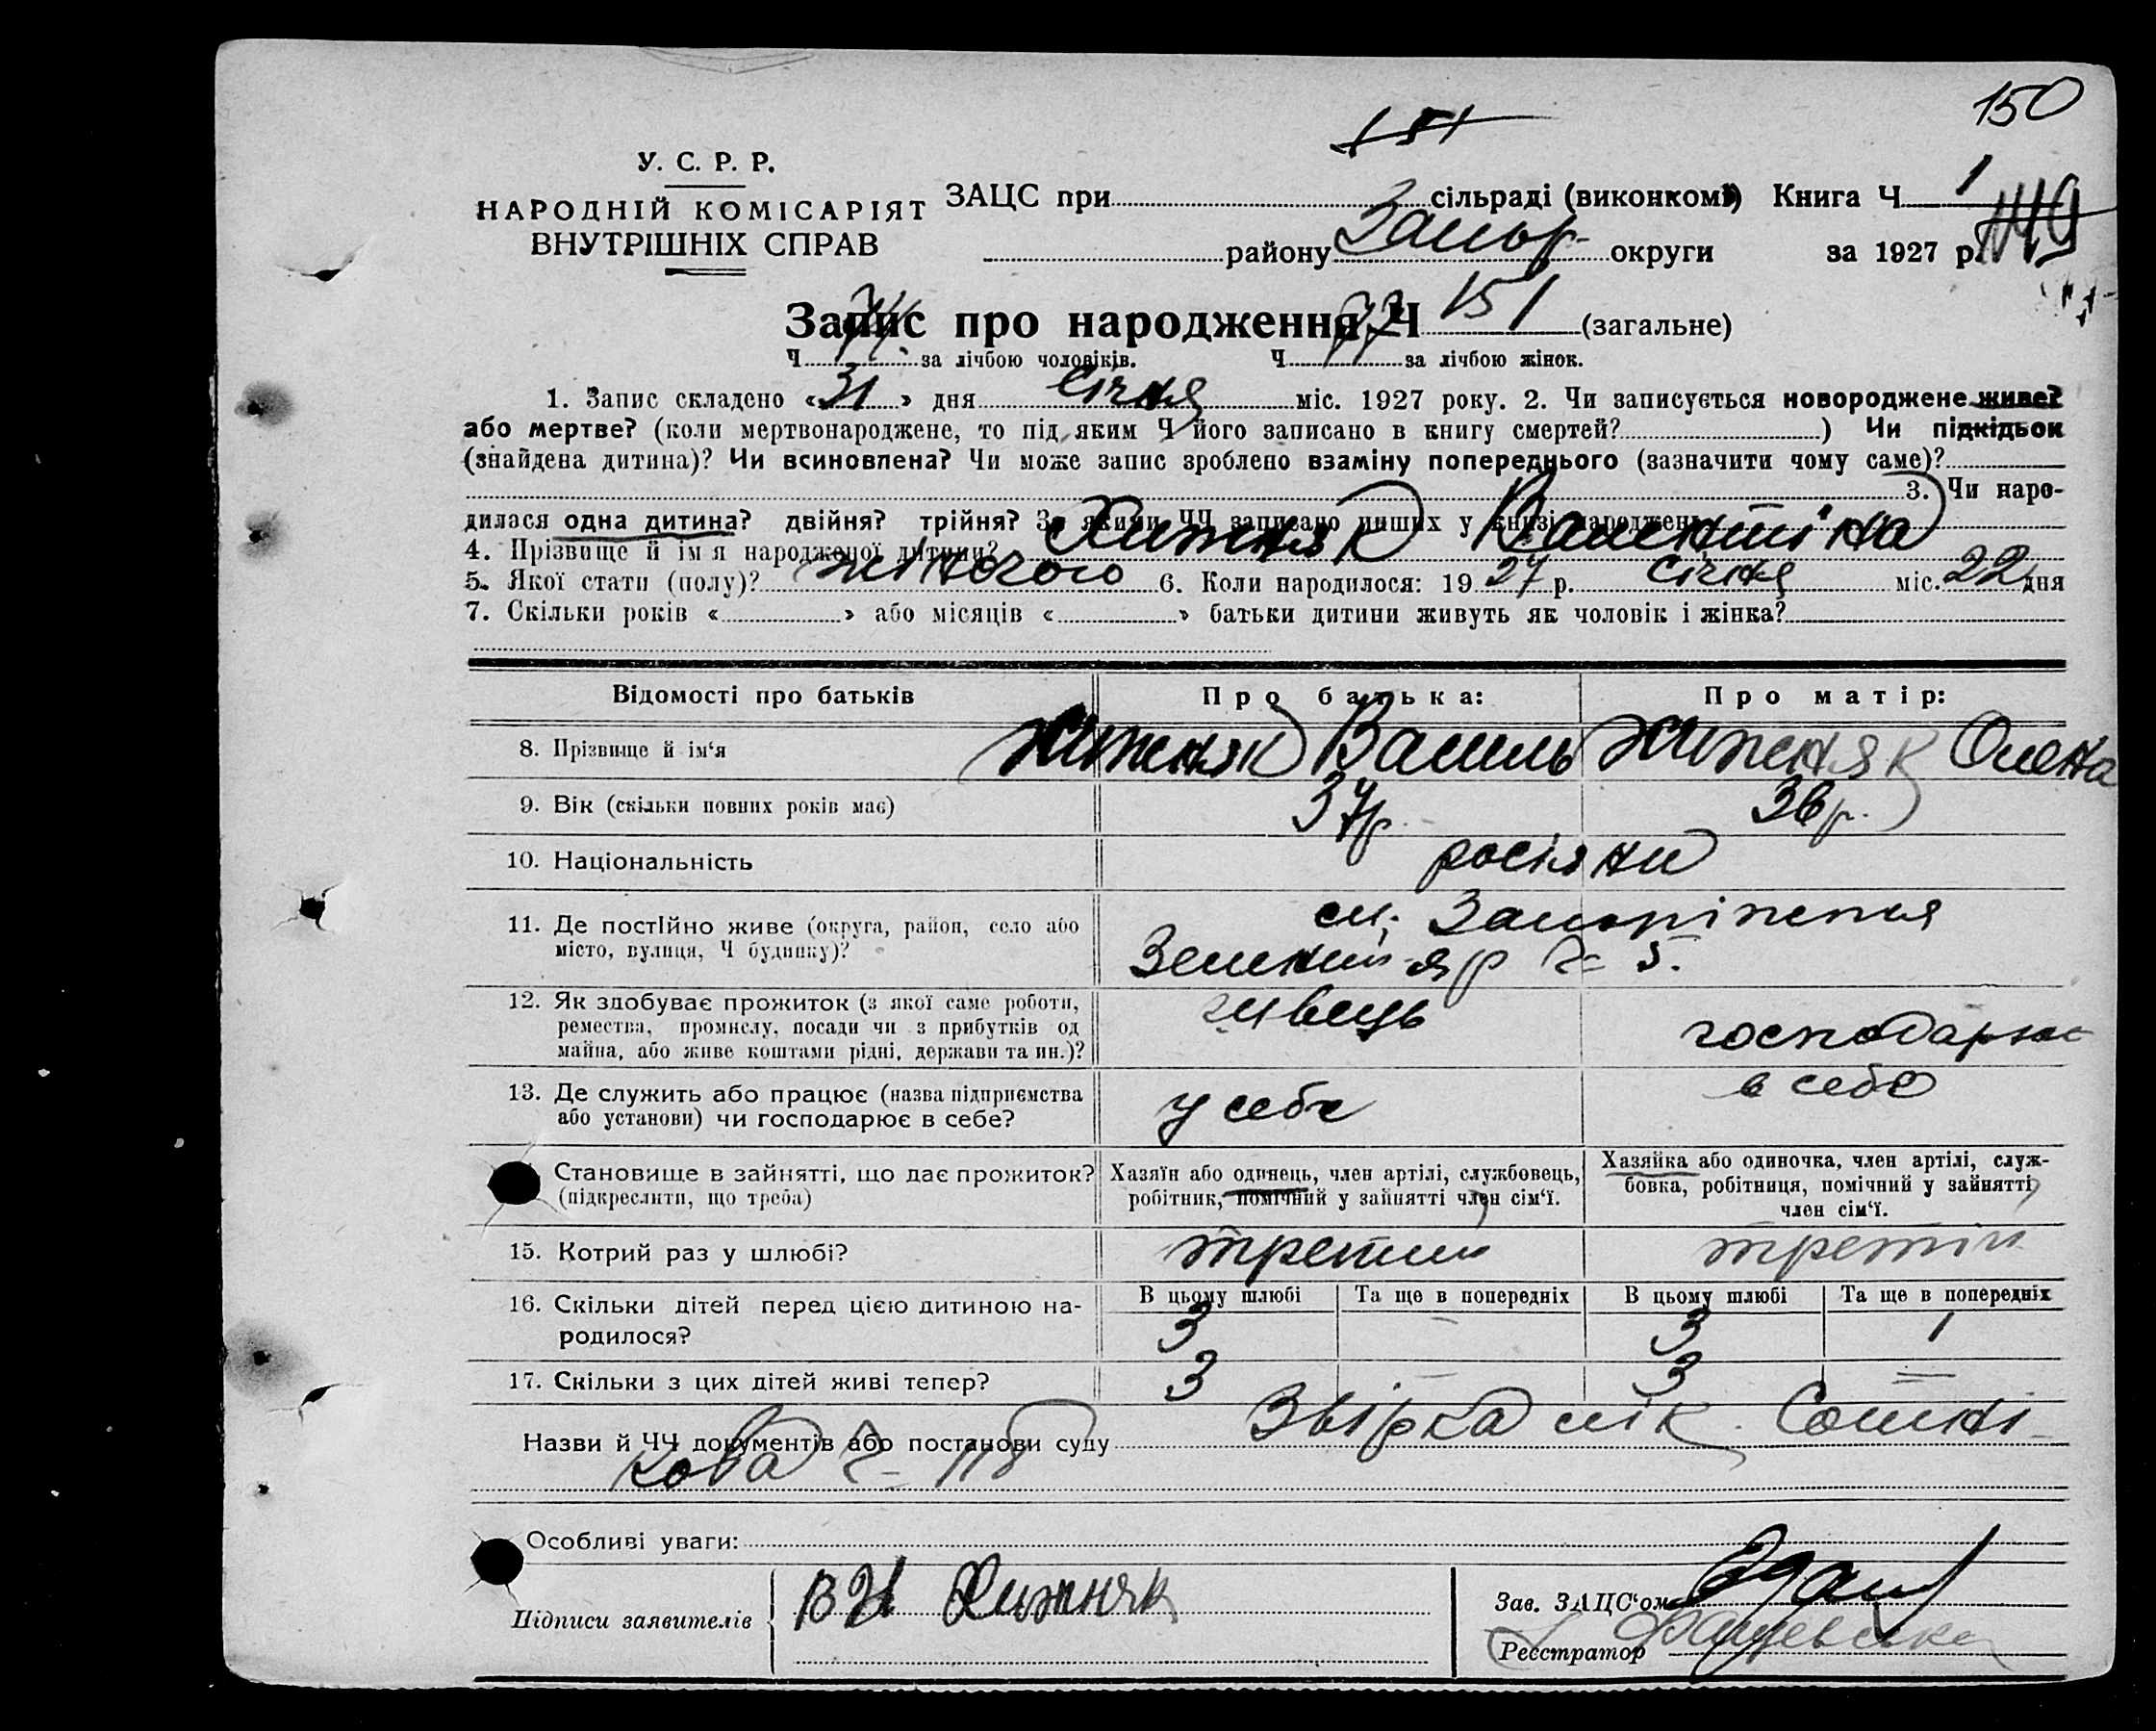 150
151
У. С. Р. Р.
НАРОДНІЙ КОМІСАРІЯТ
ВНУТРІШНІХ СПРАВ
ЗАЦС при сільраді (виконкомі) Книга Ч 1
149
району Запор округи за 1927 р.
Запис про народження Ч 151 (загальне)
Ч 74 за лічбою чоловіків. Ч 77 за лічбою жінок.
1. Запис складено «31» дня Січня міс. 1927 року. 2. Чи записується новороджене живе?
або мертве? (коли мертвонароджене, то під яким Ч його записано в книгу смертей? ) Чи підкідьок
(знайдена дитина)? Чи всиновлена? Чи може запис зроблено взаміну попереднього (зазначити чому саме)?
3. Чи наро-
дилася одна дитина? двійня? трійня? За якими ЧЧ записано инших у книзі народжень
4. Прізвище й ім'я народженої дитини? Хижняк Валентіна
5. Якої стати (полу)? жіночого 6. Коли народилося: 1927 р. січня міс. 22 дня
7. Скільки років « » або місяців « » батьки дитини живуть як чоловік і жінка?
Відомості про батьків Про батька: Про матір:
8. Прізвище й ім'я Хижняк Василь Хижняк Олена
9. Вік (скільки повних років має) 37р. 36р.
10. Національність росіяни
11. Де постійно живе (округа, район, село або місто, вулиця, Ч будинку)? м. Запоріжжя
яр Ч 5.
12. Як здобуває прожиток (з якої саме роботи, ремества, промислу, посади чи з прибутків од майна, або живе коштами рідні, держави та ин.)? швець господарює
13. Де служить або працює (назва підприємства або установи) чи господарює в себе? у себе в себе
Становище в зайнятті, що дає прожиток? (підкреслити, що треба) Хазяїн або одинець, член артілі, службовець, робітник, помічний у зайнятті член сім'ї. Хазяйка або одиночка, член артілі, служ-
бовка, робітниця, помічний у зайнятті, член сім'ї.
15. Котрий раз у шлюбі? третий третій
16. Скільки дітей перед цією дитиною на-
родилося? В цьому шлюбі Та ще в попередніх В цьому шлюбі Та ще в попередніх
3 – 3 1
17. Скільки з цих дітей живі тепер? 3 – 3 –
Назви й ЧЧ документів або постанови суду Звірка лік. Сошні-
кова Ч 118
Особливі уваги:
Підписи заявителів В И Хижняк
Зав. ЗАЦС'ом
Реєстратор